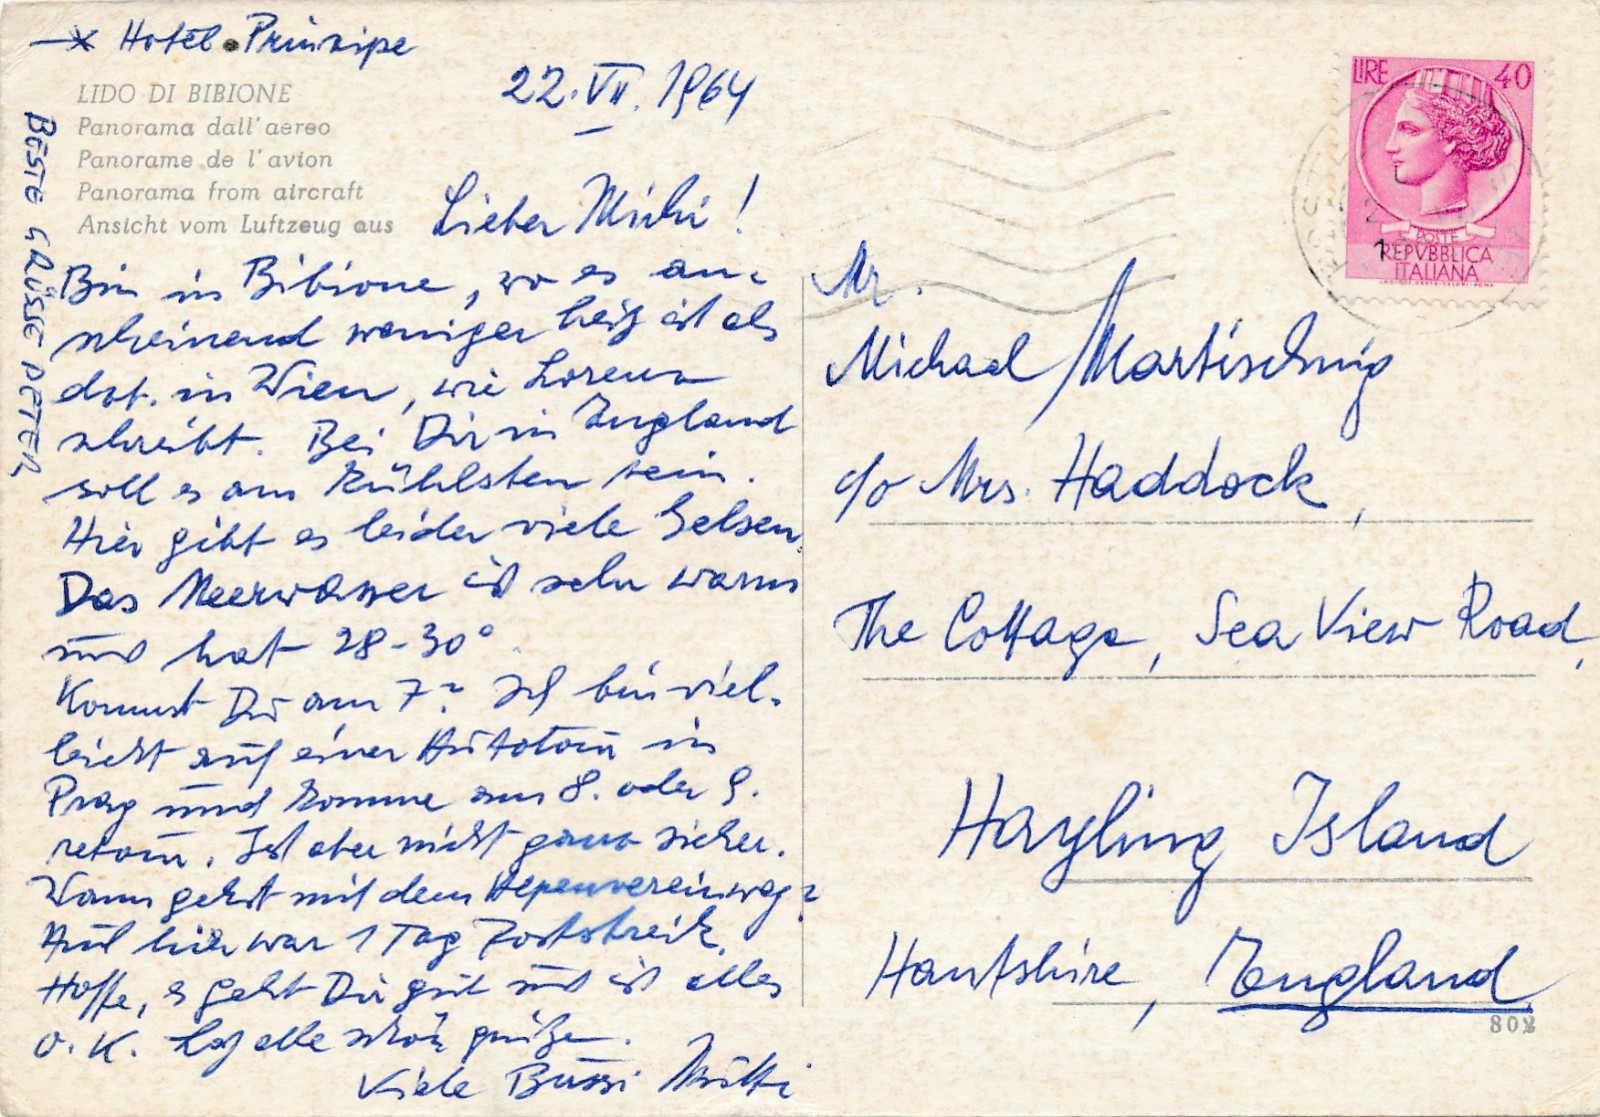 →x Hotel Principe
LIDO DI BIBIONE
Panorama dall'aereo
Panorame de l'avion
Panorama from aircraft
Ansicht vom Luftzeug aus
22.VII.1964
Lieber Michi!
Bin in Bibione, wo es an-
scheinend weniger heiß ist als
dzt. in Wien, wie Lorenz
schreibt. Bei Dir in England
soll es am kühlsten sein.
Hier gibt es leider viele Gelsen.
Das Meerwasser ist sehr warm
und hat 28-30°
Kommst Du am 7? Ich bin viel-
leicht auf einer Autotour in
Prag und komme am 8. oder 9.
retour. Ist aber nicht ganz sicher.
Wann gehst mit dem Alpenverein weg?
Auch hier war 1 Tag Poststreik.
Hoffe, es geht Dir gut und ist alles
O.K. Laß alle schön grüßen.
Viele Bussi Mutti
BESTE GRÜSSE PETER
LIRE 40
POSTE
REPVBBLICA
ITALIANA
Mr.
Michael Martischnig
c/o Mrs. Haddock,
The Cottage, Sea View Road,
Hayling Island
Hantshire, England
802